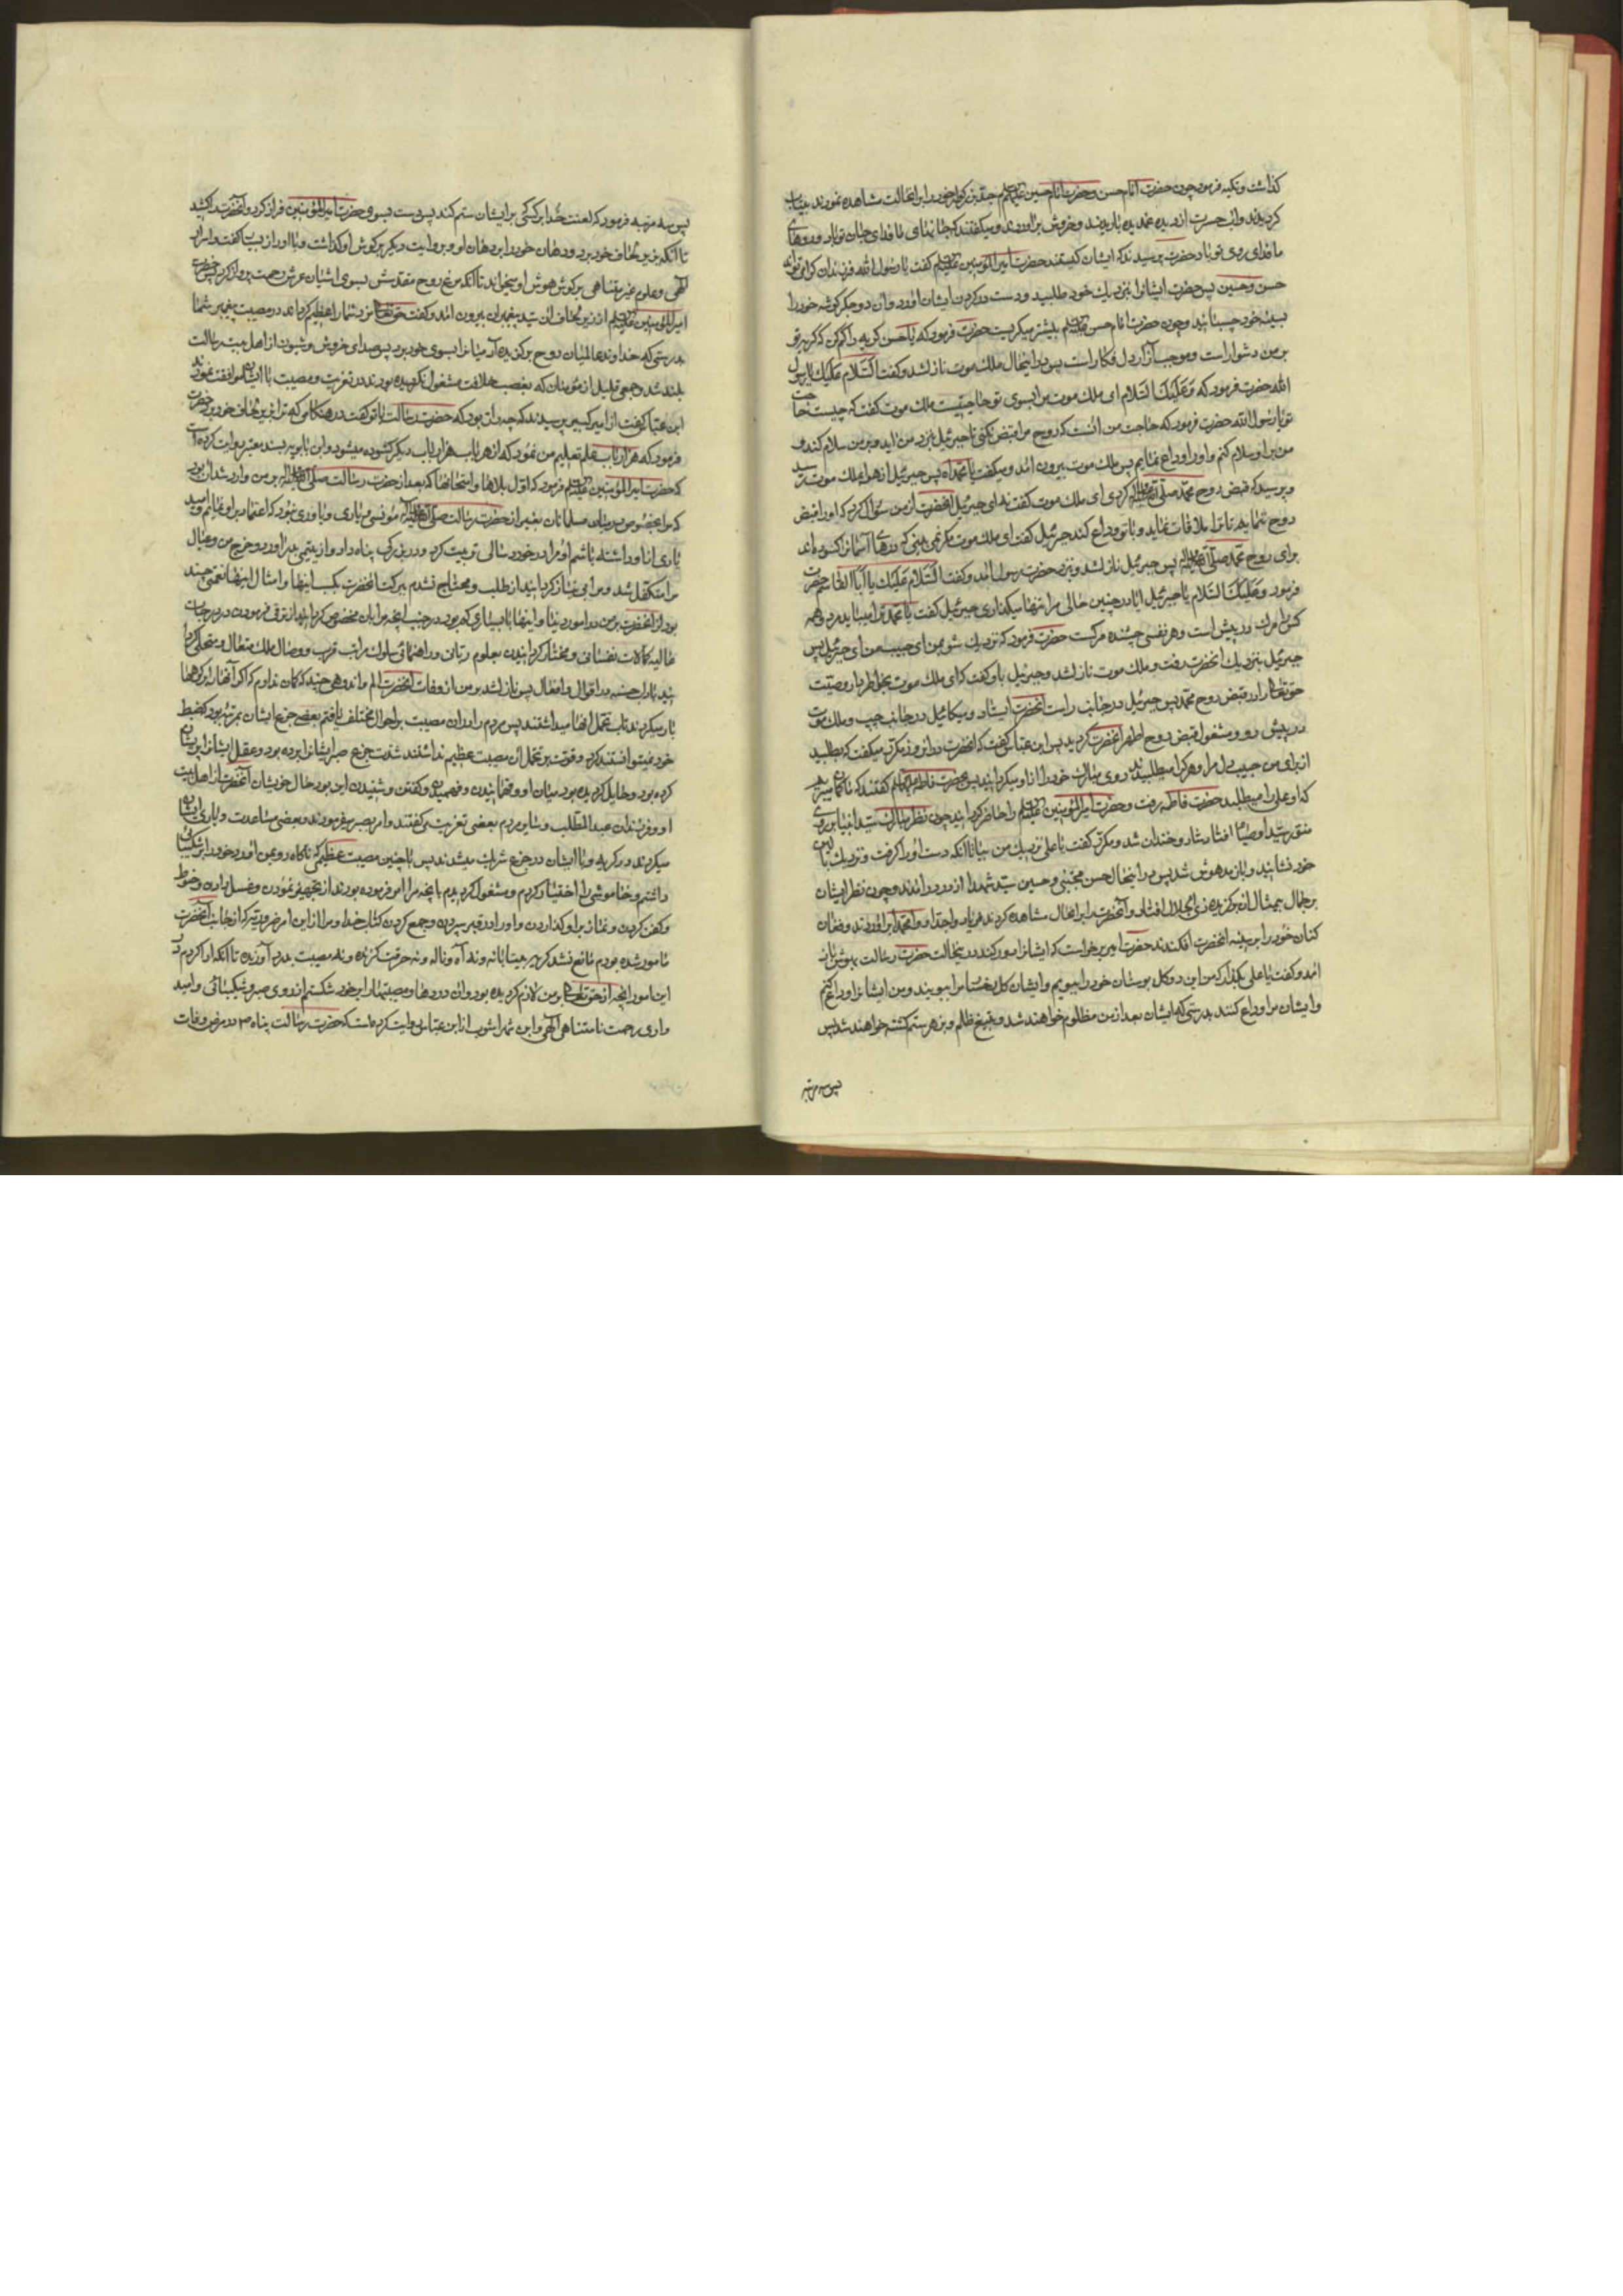 گذاشت و تکیه فرمود چون حضرت امام حسن و حضرت امام حسین علیهم السلم جد بزرگوار خود را باین حالت مشاهده نمودند بیتاب
کردیدند و آب حسرت از دیده غمدیده باریدند و خروش برآوردند و میکفتند که جانهای ما فدای جان تو باد و روهای
ما فدای روی تو باد حضرت پرسید که ایشان کیستند حضرت امیرالمؤمنین علیه السلم کفت یا رسول الله فرزندان کرامی تواند
حسن و حسین پس حضرت ایشانرا بنزدیک خود طلبید و دست در کردن ایشان آورد و آن دو جگر گوشه خود را
بسینه خود چسبانید و چون حضرت امام حسن علیه السلم بیشتر میکریست حضرت فرمود که یا حسن کریه را کم کن که کریه تو
بر من دشوار است و موجب آزار دل فکار است پس در اینحال ملک موت نازل شد و کفت السّلام علیک یا رسول
الله حضرت فرمود که وعلیک السّلام ای ملک موت مرا بسوی تو حاجتیست ملک موت کفت که چیست حاجت
تو یا رسول الله حضرت فرمود که حاجت من آنست که روح مرا قبض نکنی تا جبرئیل بنزد من آید و بر من سلام کند و
من بر او سلام کنم و او را وداع نمایم پس ملک موت بیرون آمد و میکفت یا محمداه پس جبرئیل از هوا بملک موت رسید
و پرسید که قبض روح محمد صلی الله علیه وآله کردی ای ملک موت کفت نه ای جبرئیل آنحضرت از من سؤال کرد که او را قبض
روح ننمایم تا ترا ملاقات نماید و با تو وداع کند جبرئیل کفت ای ملک موت مکر نمی بینی که درهای آسمانرا کشوده اند
برای روح محمد صلی الله علیه وآله پس جبرئیل نازل شد و بنزد حضرت رسول آمد و کفت السّلام علیک یا ابا القاسم حضرت
فرمود وعلیک السّلام یا جبرئیل ایا در چنین حالی مرا تنها میکذاری جبرئیل کفت یا محمد ترا میباید مرد و همه
کس را مرک در پیش است و هر نفسی چشنده مرکست حضرت فرمود که نزدیک شو بمن ای حبیب من ای جبرئیل پس
جبرئیل بنزدیک آنحضرت رفت و ملک موت نازل شد و جبرئیل باو کفت که ای ملک موت بخاطر دار وصیت
حق تعالی را در قبض روح محمد پس جبرئیل در جانب راست آنحضرت ایستاد و میکائیل در جانب چپ و ملک موت
در پیش رو و مشغول قبض روح اطهر آنحضرت کردید پس ابن عباس کفت که آنحضرت در آنروز مکرر میکفت که بطلبید
از برای من حبیب دل مرا و هر کرا میطلبیدند روی مبارک خود را از او میکردانید پس بحضرت فاطمه علیها السلم کفتند که ما کمان میبریم
که او علی را میطلبد حضرت فاطمه رفت و حضرت امیرالمؤمنین علیه السلم را حاضر کردانید چون نظر مبارک سید انبیا بر روی
منور سید اوصیا افتاد شاد و خندان شد و مکرر کفت یا علی نزدیک من بیا تا آنکه دست او را کرفت و نزدیک بالین
خود نشانید و باز مدهوش شد پس در اینحال حسن مجتبی و حسین سید شهدا از در درآمدند و چون نظر ایشان
بر جمال بیمثال آن برکزیده ذی الجلال افتاد و آنحضرت را باین حال مشاهده کردند فریاد واجداه وامحمداه برآوردند و فغان
کنان خود را بر سینه آنحضرت افکندند حضرت امیر برخواست که ایشانرا دور کند در اینحالت حضرت رسالت بهوش باز
آمد و کفت یا علی بکذار که من این دو کل بوستان خود را ببویم و ایشان کل رخسار مرا ببویند و من ایشانرا وداع کنم
و ایشان مرا وداع کنند بدرستی که ایشان بعد از من مظلوم خواهند شد و بتیغ ظلم و بزهر ستم کشته خواهند شد پس
پس سه مرتبه
پس سه مرتبه فرمود که لعنت خدا بر کسی که بر ایشان ستم کند پس دست بسوی حضرت امیرالمؤمنین فراز کرد و آنحضرت را کشید
تا آنکه بزیر لحاف خود برد و دهان خود را بر دهان او و بروایت دیکر بر کوش او کذاشت و با او راز بسیار کفت و اسرار
الهی و علوم غیر متناهی بر کوش هوش او میخواند تا آنکه مرغ روح مقدسش بسوی آشیان عرش رحمت پرواز کرد پس حضرت
امیرالمؤمنین علیه السلم از زیر لحاف آن سید پیغمبران بیرون آمد و کفت حق تعالی مزد شما را عظیم کرداند در مصیبت پیغمبر شما
بدرستی که خداوند عالمیان روح برکزیده آدمیانرا بسوی خود برد پس صدای خروش و شیون از اهل بیت رسالت
بلند شد و جمعی قلیل از مؤمنان که بغصب خلافت مشغول نکردیده بودند در تعزیت و مصیبت با ایشان موافقت نمودند
ابن عباس کفت از امیر کبیر پرسیدند که چه راز بود که حضرت رسالت با تو کفت در هنکامی که ترا بزیر لحاف خود برد حضرت
فرمود که هزار باب علم تعلیم من نمود که از هر باب هزار باب دیکر کشوده میشود و ابن بابویه بسند معتبر روایت کرده است
که حضرت امیرالمؤمنین علیه السلم فرمود که اول بلاها و امتحانها که بعد از حضرت رسالت صلی الله علیه وآله بر من وارد شد آن بود
که مرا بخصوص در میان مسلمانان بغیر از حضرت رسالت صلی الله علیه وآله مونسی و یاری و یاوری نبود که اعتماد بر او نمایم و امید
یاری از او داشته باشم او مرا در خورد سالی تربیت کرد و در بزرکی پناه داد و از یتیمی بدر آورد و خرج من و عیال
مرا متکفل شد و مرا بی نیاز کردانید از طلب و محتاج نشدم ببرکت آنحضرت بکسب اینها و امثال اینها نعمتی چند
بود از آنحضرت بر من در امور دنیا و اینها با بسیاری که بود در جنب آنچه مرا بان مخصوص کردانید از ترقی فرمودن در درجات
عالیه کمالات نفسانی و مختار کردانیدن بعلوم ربانی و راهنمائی سلوک مراتب قرب و وصال ملک متعال و متحلی کردانیدن
بآداب حسنه در اقوال و افعال پس نازل شد بر من از وفات آنحضرت الم و اندوهی چند که کمان ندارم که اکر آنها را بر کوهها
بار میکردند تاب تحمل آنها میداشتند پس مردم را در آن مصیبت بر احوال مختلف یافتم بعضی جزع ایشان بمرتبه بود که ضبط
خود نمیتوانستند کرد و قوت بر تحمل آن مصیبت عظیم نداشتند شدت جزع صبر ایشانرا برده بود و عقل ایشانرا پریشان
کرده بود و حایل کردیده بود میان او و فهمانیدن و فهمیدن و کفتن و شنیدن این بود حال خویشان آنحضرت از اهل بیت
او و فرزندان عبد المطلب و سایر مردم بعضی تعزیت میکفتند و امر بصبر میفرمودند و بعضی مساعدت و یاری ایشان
میکردند در کریه و با ایشان در جزع شریک میشدند پس با چنین مصیبت عظیمی که ناکاه رو بمن آورد خود را بر شکیبائی
داشتم و خاموشی را اختیار کردم و مشغول کردیدم بآنچه مرا امر فرموده بود از تجهیز نمودن و غسل دادن و حنوط
و کفن کردن و نماز بر او کذاردن و او را در قبر سپردن و جمع کردن کتاب خدا و مرا از این امر ضروریه که از جانب آنحضرت
مامور شده بودم مانع نشد کریه بیتابانه و نه آه و ناله و نه حرقت کزنده و نه مصیبت بدرد آورنده تا آنکه ادا کردم در
این امور آنچه از حق تعالی بر من لازم کردیده بود و آن دردها و مصیبتها را بر خود شکستم از روی صبر و شکیبائی و امید
واری رحمت نامتناهی الهی و ابن شهراشوب از ابن عباس روایت کرده است که حضرت رسالت پناه ص در مرض وفات